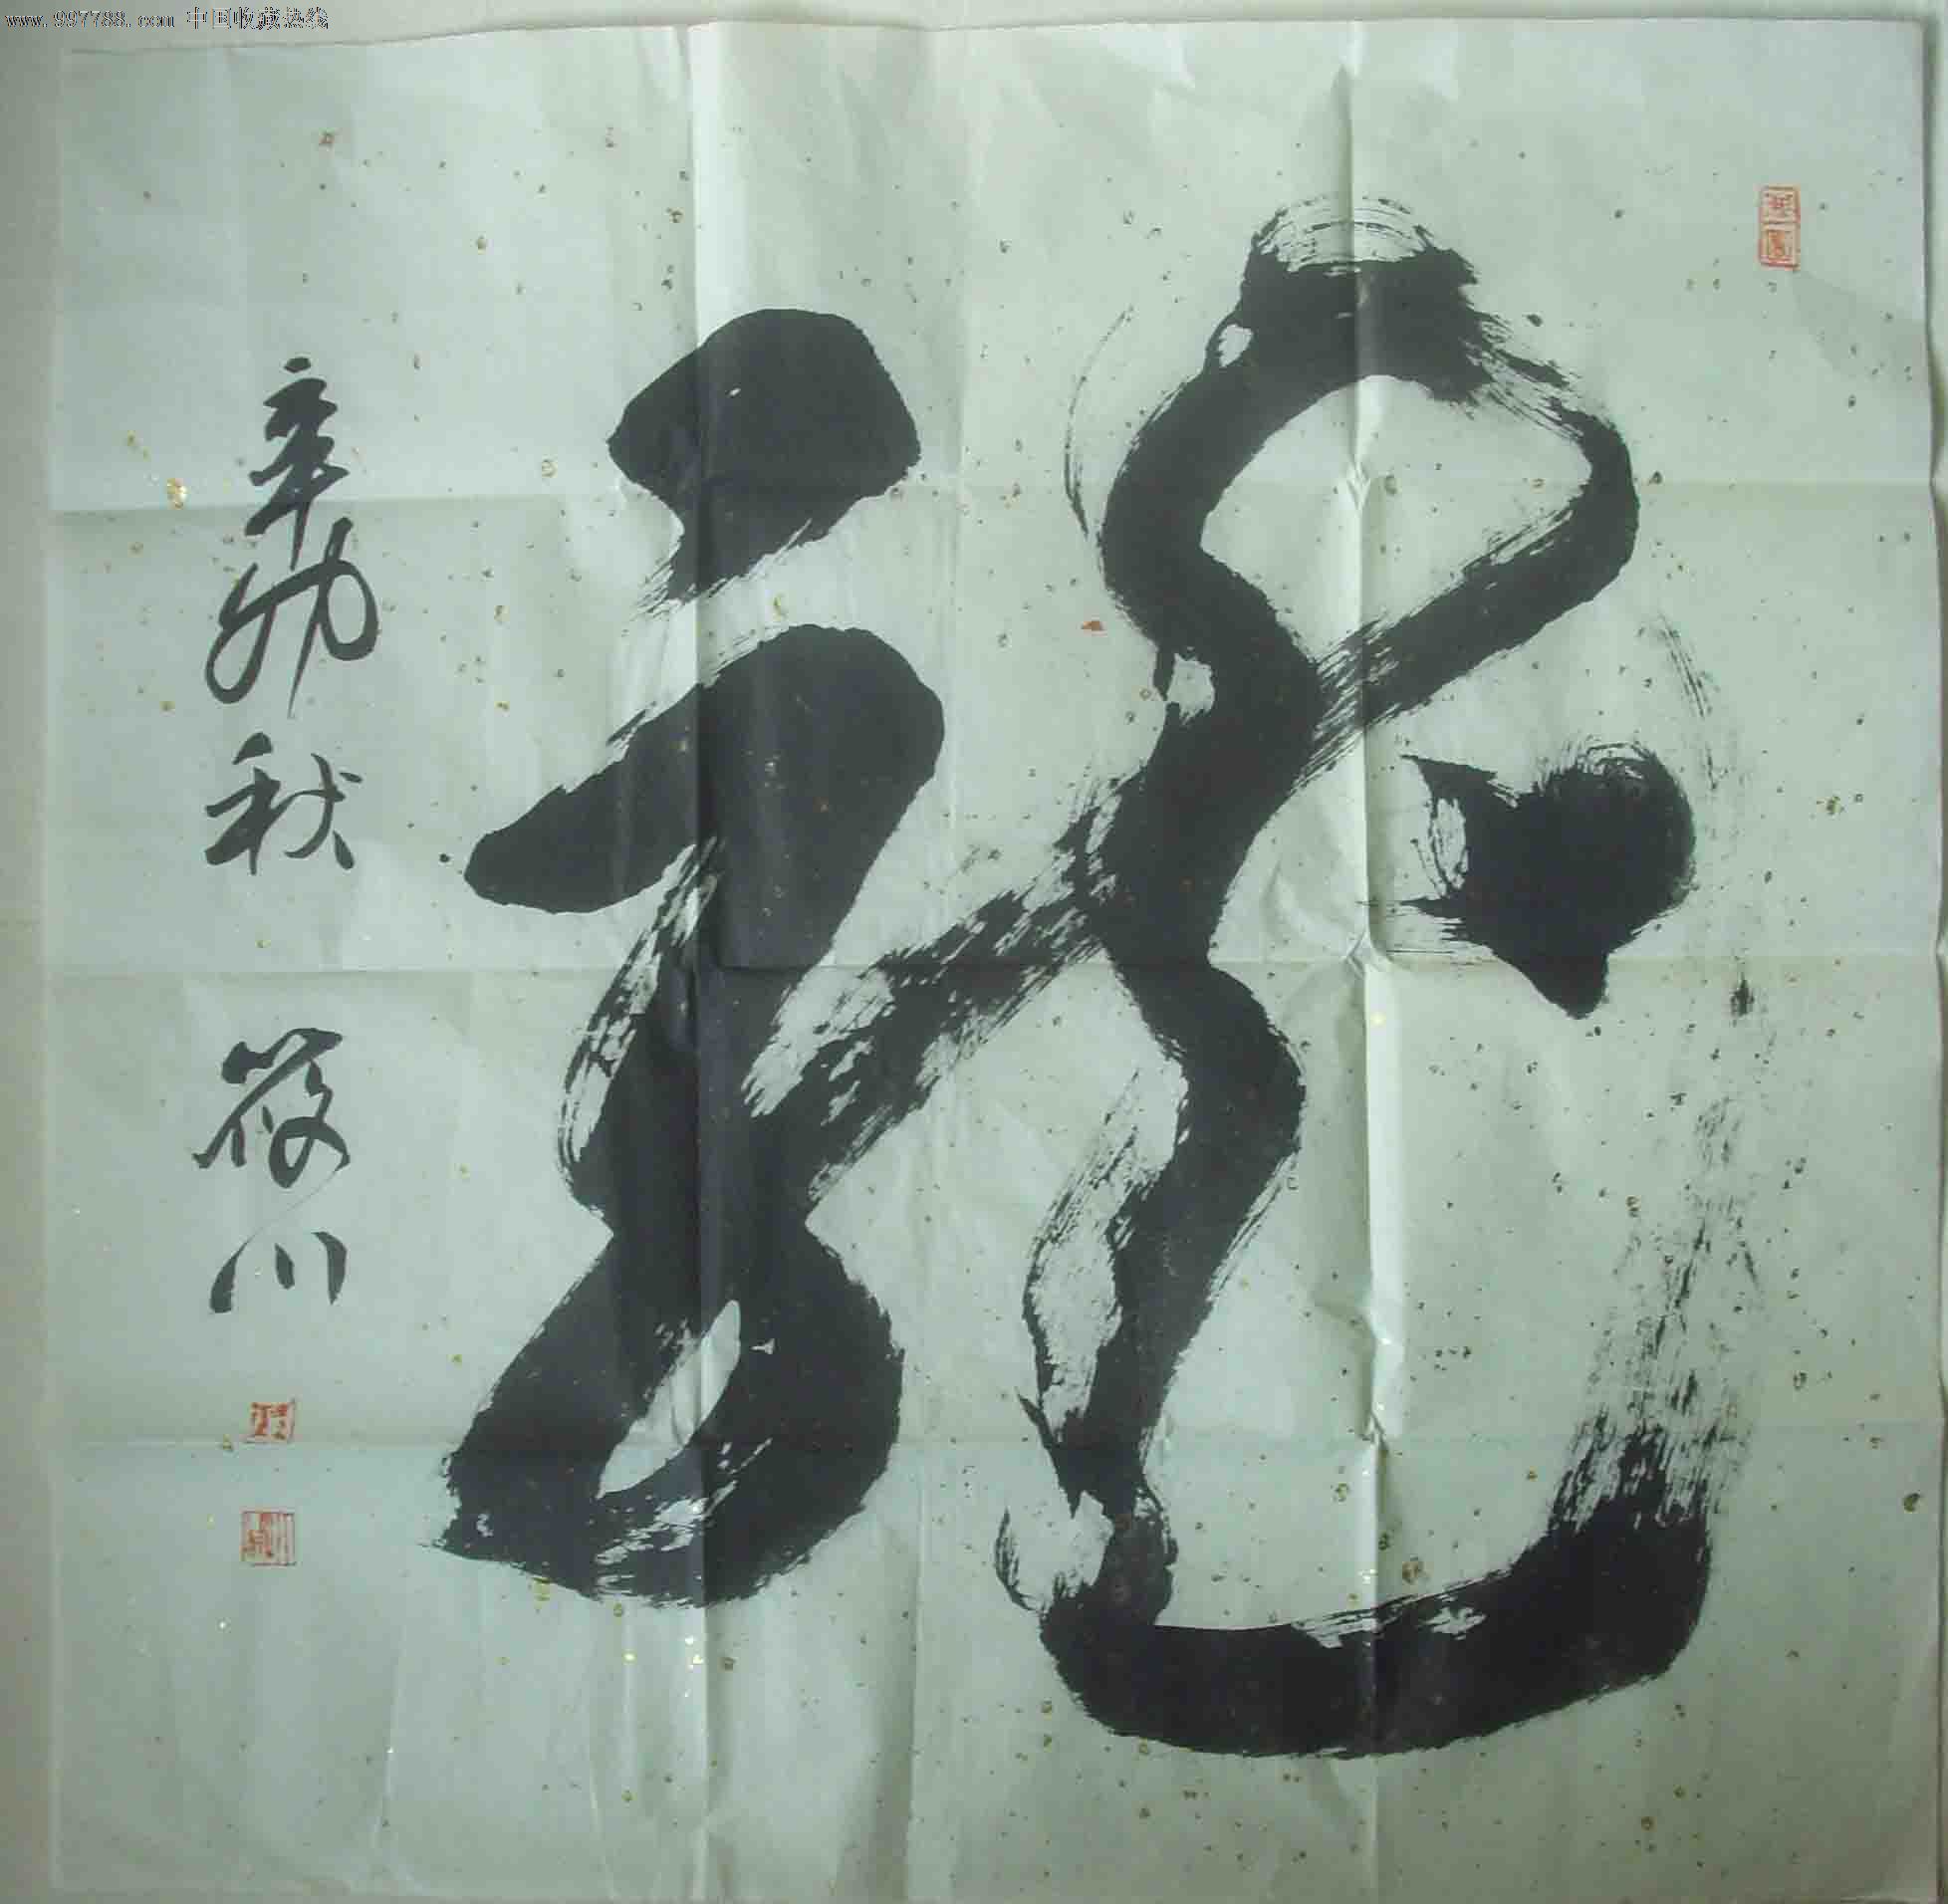 www.997788.com 中国收藏热线
龍
辛卯秋 筱川